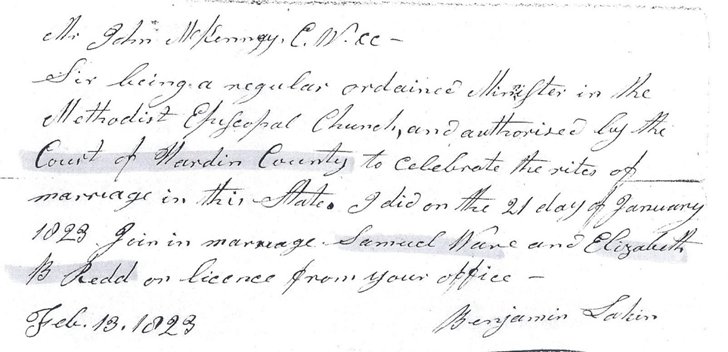 Mr John McKenney, C. W. cc –
Sir being a regular ordained Minister in the
Methodist Episcopal Church, and authorised by the
Court of Hardin County to celebrate the rites of
marriage in this State. I did on the 21 day of January
1823 Join in marriage Samuel Ware and Elizabeth
B Redd on licence from your office –
Feb. 13. 1823
Benjamin Lakin